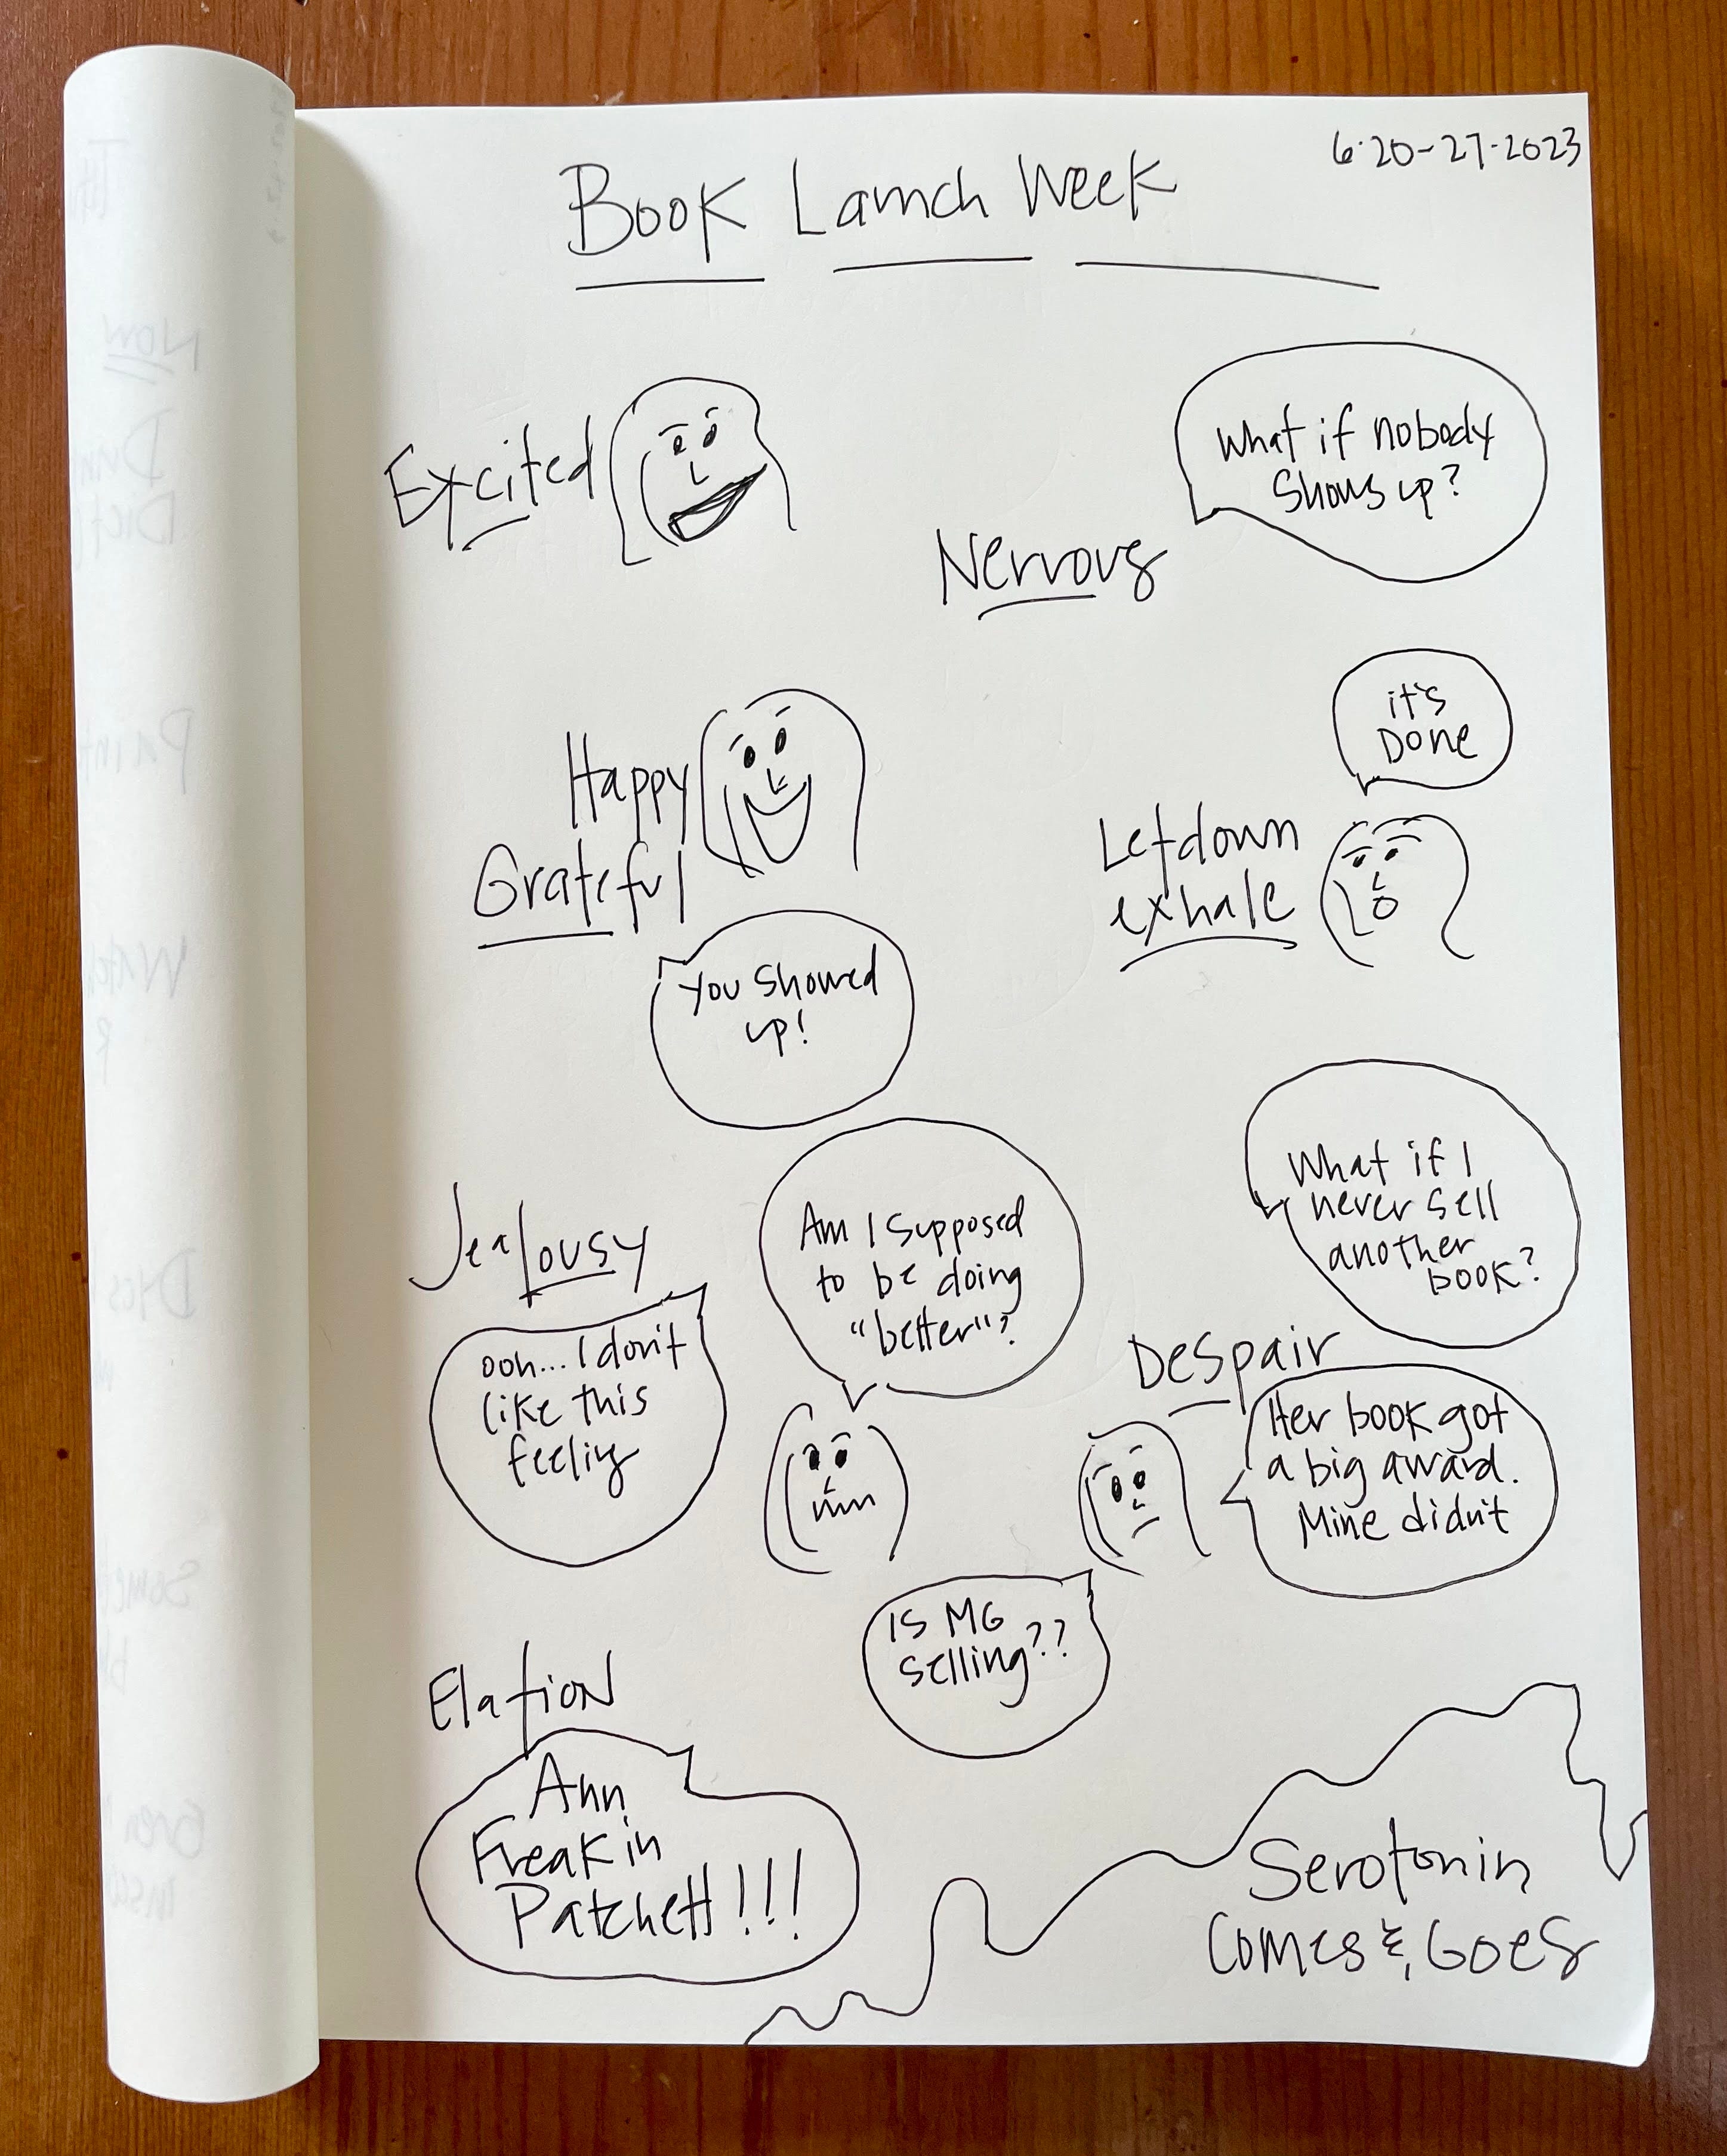 6·20-27·2023
Book Launch Week
Excited
What if nobody
shows up?
Nervous
Happy
Grateful
You showed
up!
it's
Done
Letdown
exhale
Jealousy
ooh... I don't
like this
feeling
Am I supposed
to be doing
"better"?
What if I
never sell
another
book?
Despair
Her book got
a big award.
Mine didn't
Is MG
selling??
Elation
Ann
Freakin
Patchett!!!
Serotonin
Comes & Goes
Now
Paint